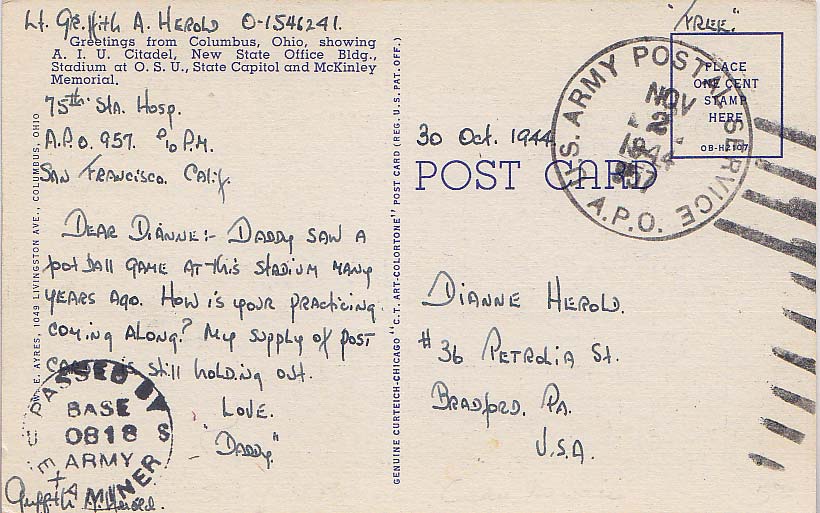 Lt. Griffith A. Herold O-1546241.
Greetings from Columbus, Ohio, showing
A. I. U. Citadel, New State Office Bldg.,
Stadium at O. S. U., State Capitol and McKinley
Memorial.
75th Sta. Hosp.
A.P.O. 957. % P.M.
San Francisco. Calif.
Dear Dianne:- Daddy saw a
football game at this stadium many
years ago. How is your practicing
coming along? My supply of post
is still holding out.
Love.
"Daddy."
PASSED BY
BASE
0818
ARMY
EXAMINER
U S
Griffith A. Herold.
W. E. AYRES, 1049 LIVINGSTON AVE., COLUMBUS, OHIO
GENUINE CURTEICH-CHICAGO "C.T. ART-COLORTONE" POST CARD (REG. U.S. PAT. OFF.)
"Free."
PLACE
ONE CENT
STAMP
HERE
OB-H2107
U.S. ARMY POSTAL SERVICE
A.P.O.
NOV
2
1944
957
30 Oct. 1944.
POST CARD
Dianne Herold.
#36 Petrolia St.
Bradford. Pa.
U.S.A.